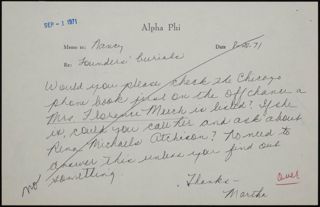 SEP - 1 1971
Alpha Phi
Memo to: Nancy
Date 8-30-71
Re: Founders' burials
Would you please check the Chicago
phone book just on the off chance a
Mrs. Florence Meech is listed? If she
is, could you call her and ask about
Rena Michaels Atchison? No need to
answer this unless you find out
something.
no
Thanks -
Martha
over